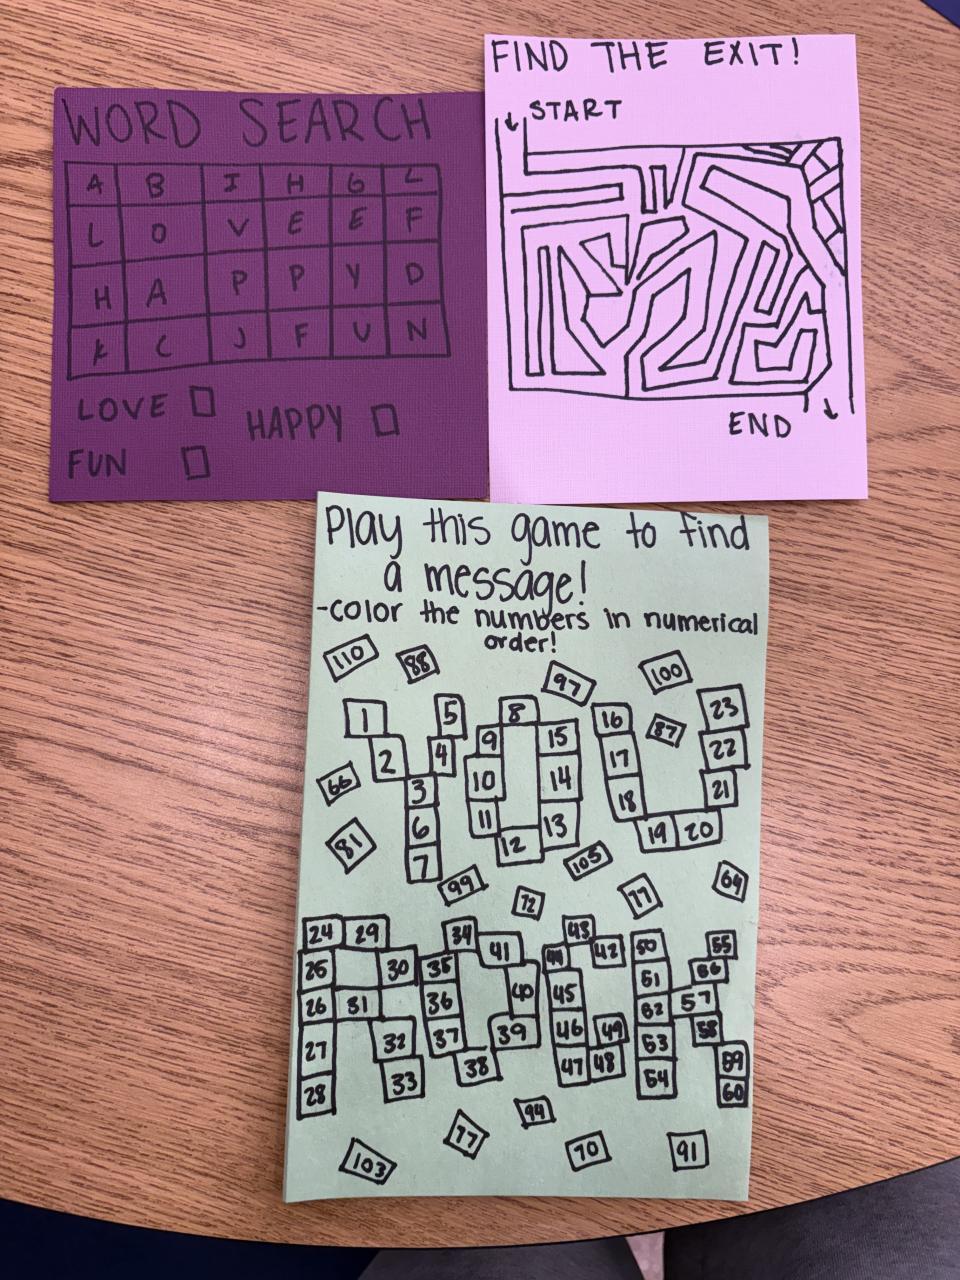 WORD SEARCH
A B I H G L
L O V E E F
H A P P Y D
K C J F U N
LOVE
HAPPY
FUN
FIND THE EXIT!
START
END
Play this game to find
a message!
-color the numbers in numerical
order!
110 88 97 100
1 5 8 16 23
9 15 87
2 4 17 22
66 3 10 14 18 21
81 6 11 13 19 20
7 12
99 72 105 77 64
24 29 34 41 43 50 55
25 30 35 44 42 51 56
26 31 36 40 45 52 57
27 32 37 39 46 49 53 58
28 33 38 47 48 54 59
60
103 77 94 70 91